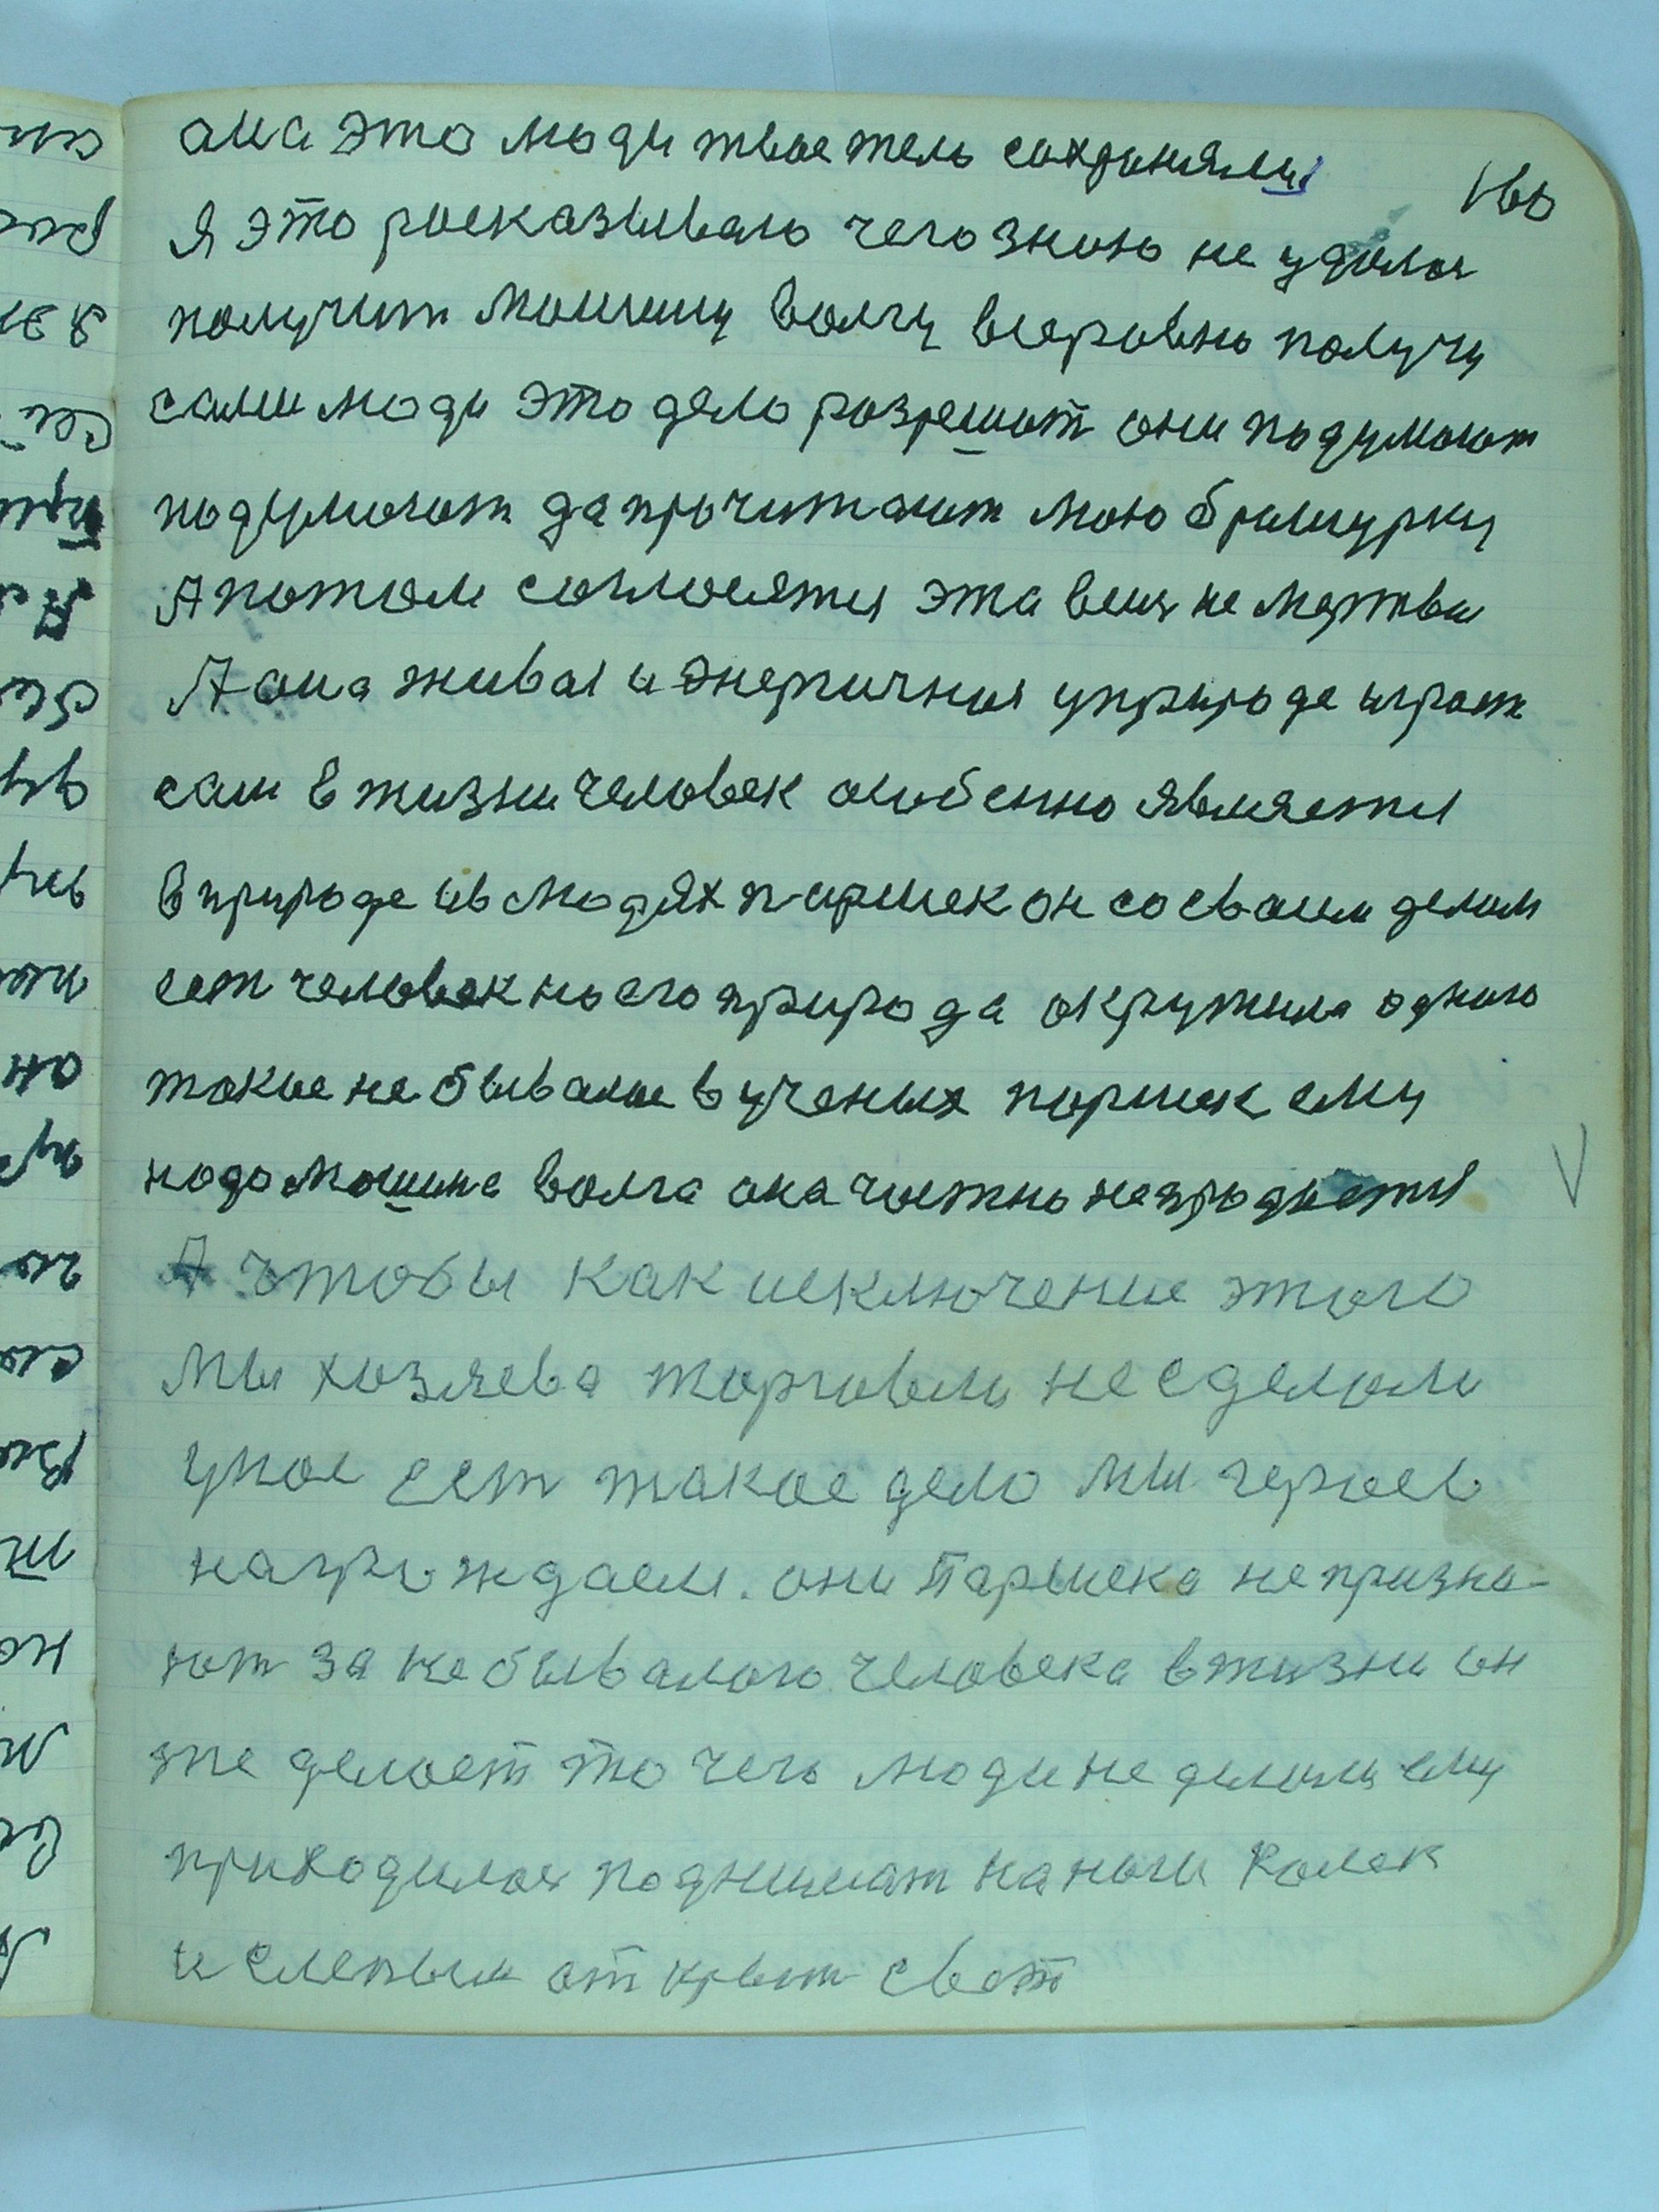 она это люди твое тело сохраняли
160
Я это росказываю чего знаю не удалос
получит мошину волгу всеровно получу
сами люди это дело розрешат они подумают
подумоют да прочитают мою брошурку
А потом согласятся эта вещ не мертва
А она живая и энергичная уприроде играт
сам в жизни человек особенно является
в природе ив людях паршек он со своим делом
ест человек но его природа окружила одного
такое не бывалое в ученых поршек ему
нодо мошина волга она частно непродается
А чтобы как исключение этого
мы хозяева торговли не сделали
унас ест такое дело мы героев
награждаем. они Паршека не призна-
ют за небывалого человека в жизни он
же делоет то чего люди не делали ему
приходилос поднимат на ноги колек
и слепым открыт свет